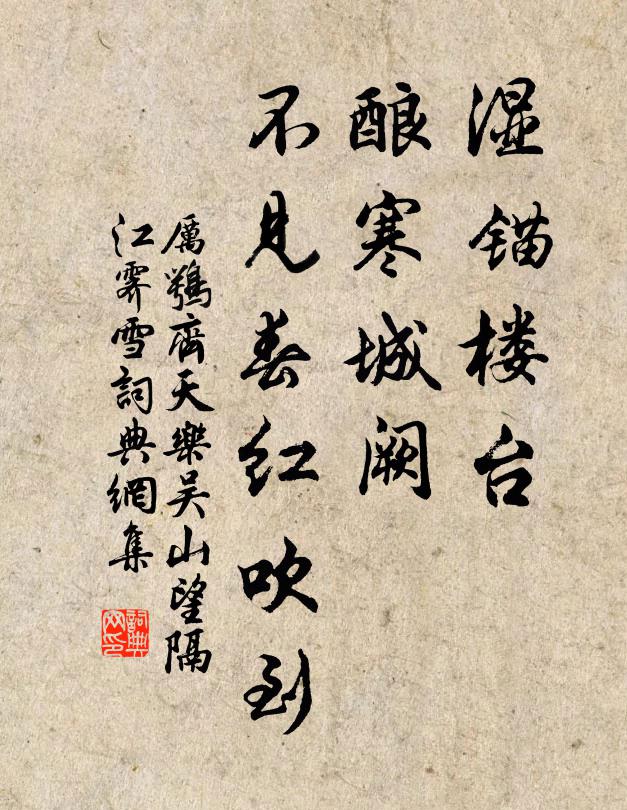 湿锚楼台
酿寒城阙
不见春红吹到
厲鶚齊天樂吴山望隔
江霽雪詞典網集
詞典
网印